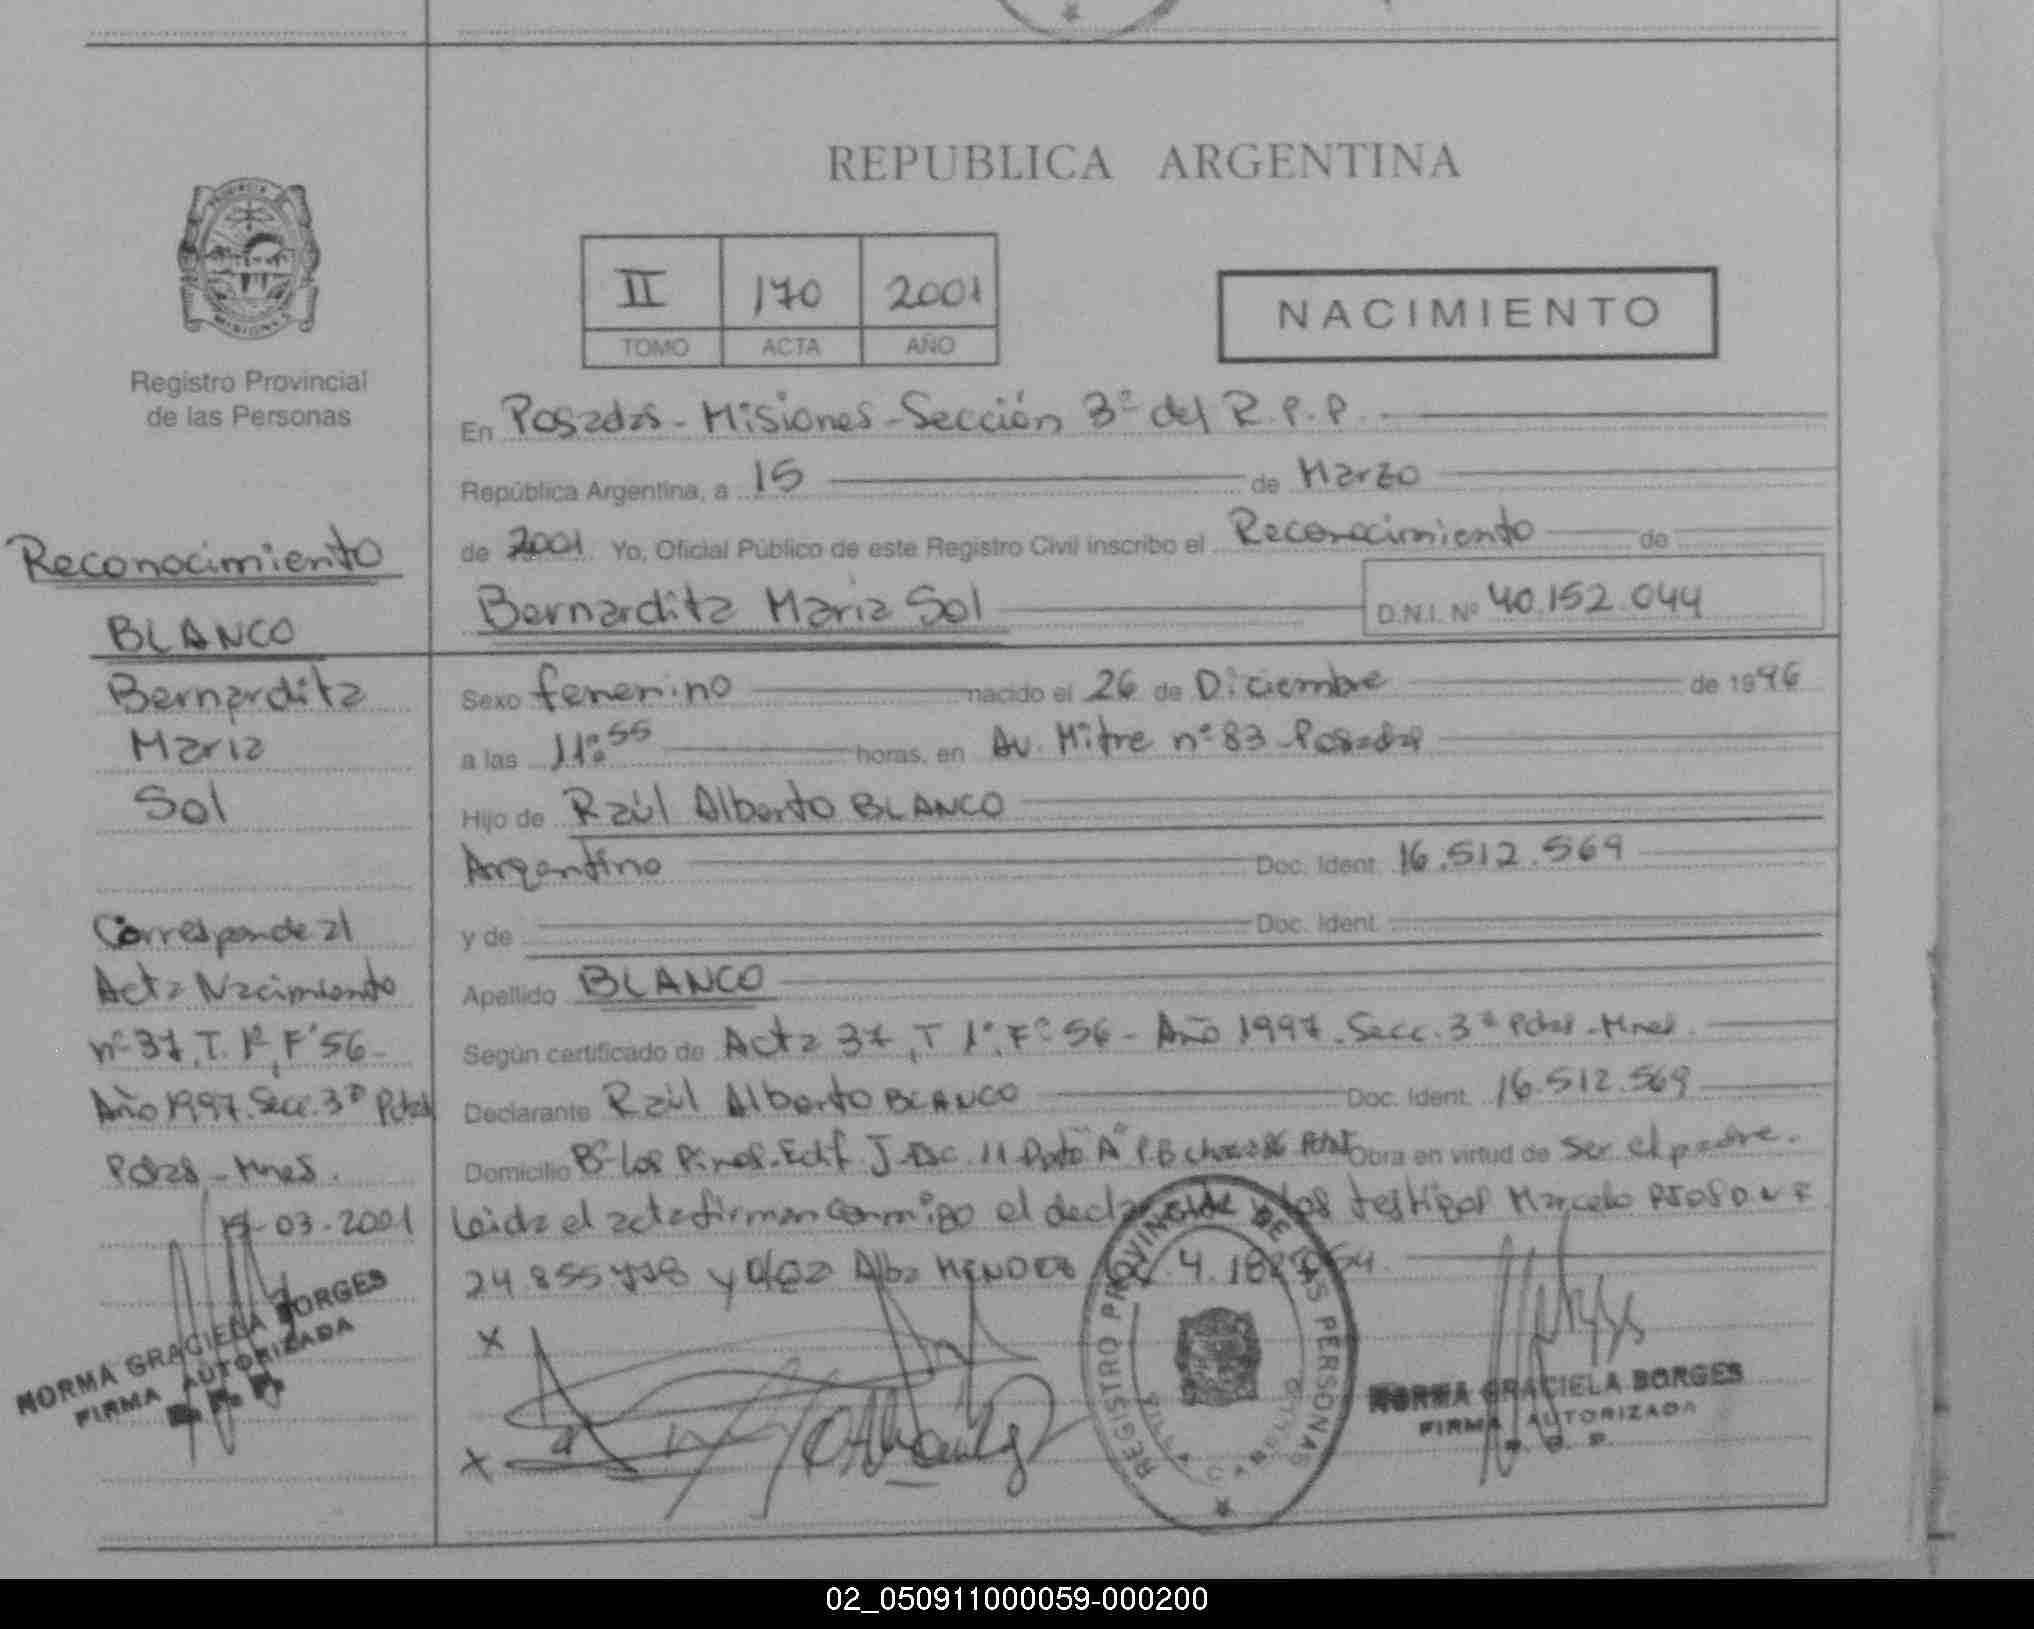 REPUBLICA ARGENTINA
II 170 2001
TOMO ACTA AÑO
NACIMIENTO
MISIONES
Registro Provincial
de las Personas
Reconocimiento
BLANCO
Bernardita
Maria
Sol
Corresponde al
Acta Nacimiento
nº 37, T. 1º, Fº 56-
Año 1997. Secc. 3ª Pdas
Pdas - Mnes.
15-03-2001
NORMA GRACIELA BORGES
FIRMA AUTORIZADA
En Posadas - Misiones - Sección 3ª del R.P.P.
República Argentina, a 15 de Marzo
de 2001 Yo, Oficial Público de este Registro Civil inscribo el Reconocimiento de
Bernardita Maria Sol D.N.I. Nº 40.152.044
Sexo femenino nacido el 26 de Diciembre de 1996
a las 11:55 horas, en Av. Mitre nº 83 - Posadas
Hijo de Raúl Alberto BLANCO
Argentino Doc. Ident. 16.512.569
y de Doc. Ident.
Apellido BLANCO
Según certificado de Acta 37, T 1º, Fº 56 - Año 1997. Secc. 3ª Pdas - Mnes.
Declarante Raúl Alberto BLANCO Doc. Ident. 16.512.569
Domicilio Bº Los Pinos - Edif. J - Esc. 11 Dpto "A" P.B Obra en virtud de ser el padre.
Leida el acta firman conmigo el declarante y los testigos Marcelo
24.855.778 y Alba
X
X
REGISTRO PROVINCIAL DE LAS PERSONAS
VILLA CABELLO
NORMA GRACIELA BORGES
FIRMA AUTORIZADA
02_050911000059-000200